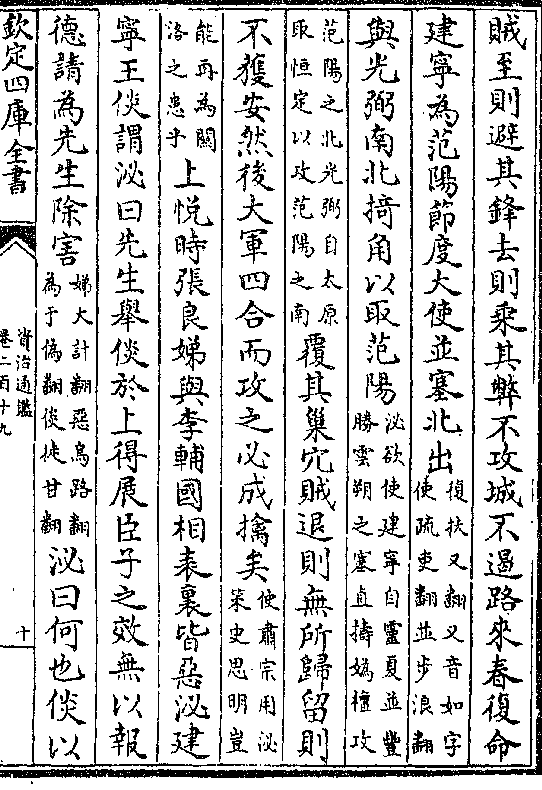 賊至則避其鋒去則乘其弊不攻城不遏路來春復命
建寧為范陽節度大使並塞北出復扶又翻又音如字使疏吏翻並步浪翻
與光弼南北掎角以取范陽泌欲使建寧自靈夏並豐勝雲朔之塞直擣媯檀攻
范陽之北光弼自太原取恒定以攻范陽之南覆其巢穴賊退則無所歸留則
不獲安然後大軍四合而攻之必成擒矣使肅宗用泌策史思明豈
能再為關洛之患乎上悅時張良娣與李輔國相表裏皆惡泌建
寧王倓謂泌曰先生舉倓於上得展臣子之效無以報
德請為先生除害娣大計翻惡烏路翻為于偽翻倓徒甘翻泌曰何也倓以
欽定四庫全書
資治通鑑
卷二百十九
十